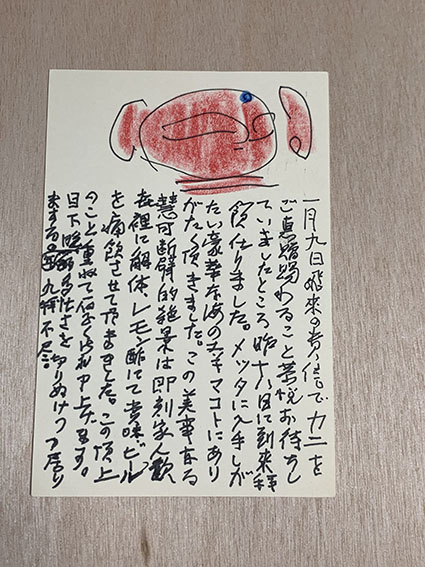 一月九日飛来の貴信でカニを
ご恵贈賜わること
お待ちし
ていましたところ昨十六日に到来拝
飲仕りました。メッタに入手しが
たい豪華な海のエキマコトにあり
がたく頂きました。この美事なる
慧可断臂的絶景は即刻家人歓
喜裡に解体、レモン酢にて賞味ビール
を痛飲させて頂きました。この頂上
のこと重ねて
申上げます。
目下
多忙さを切りぬけつつあり
ます。
九拝不尽